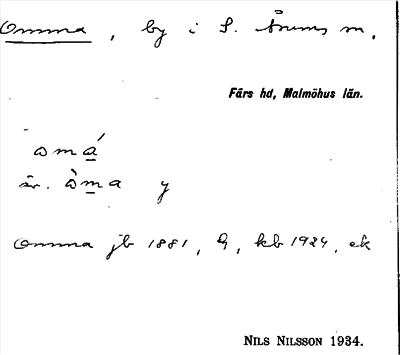 Omma, by i S. Åsums sn.
Färs hd, Malmöhus län.
omá
äv. òma y
Omma jb 1881, G, kb 1924, ek
NILS NILSSON 1934.